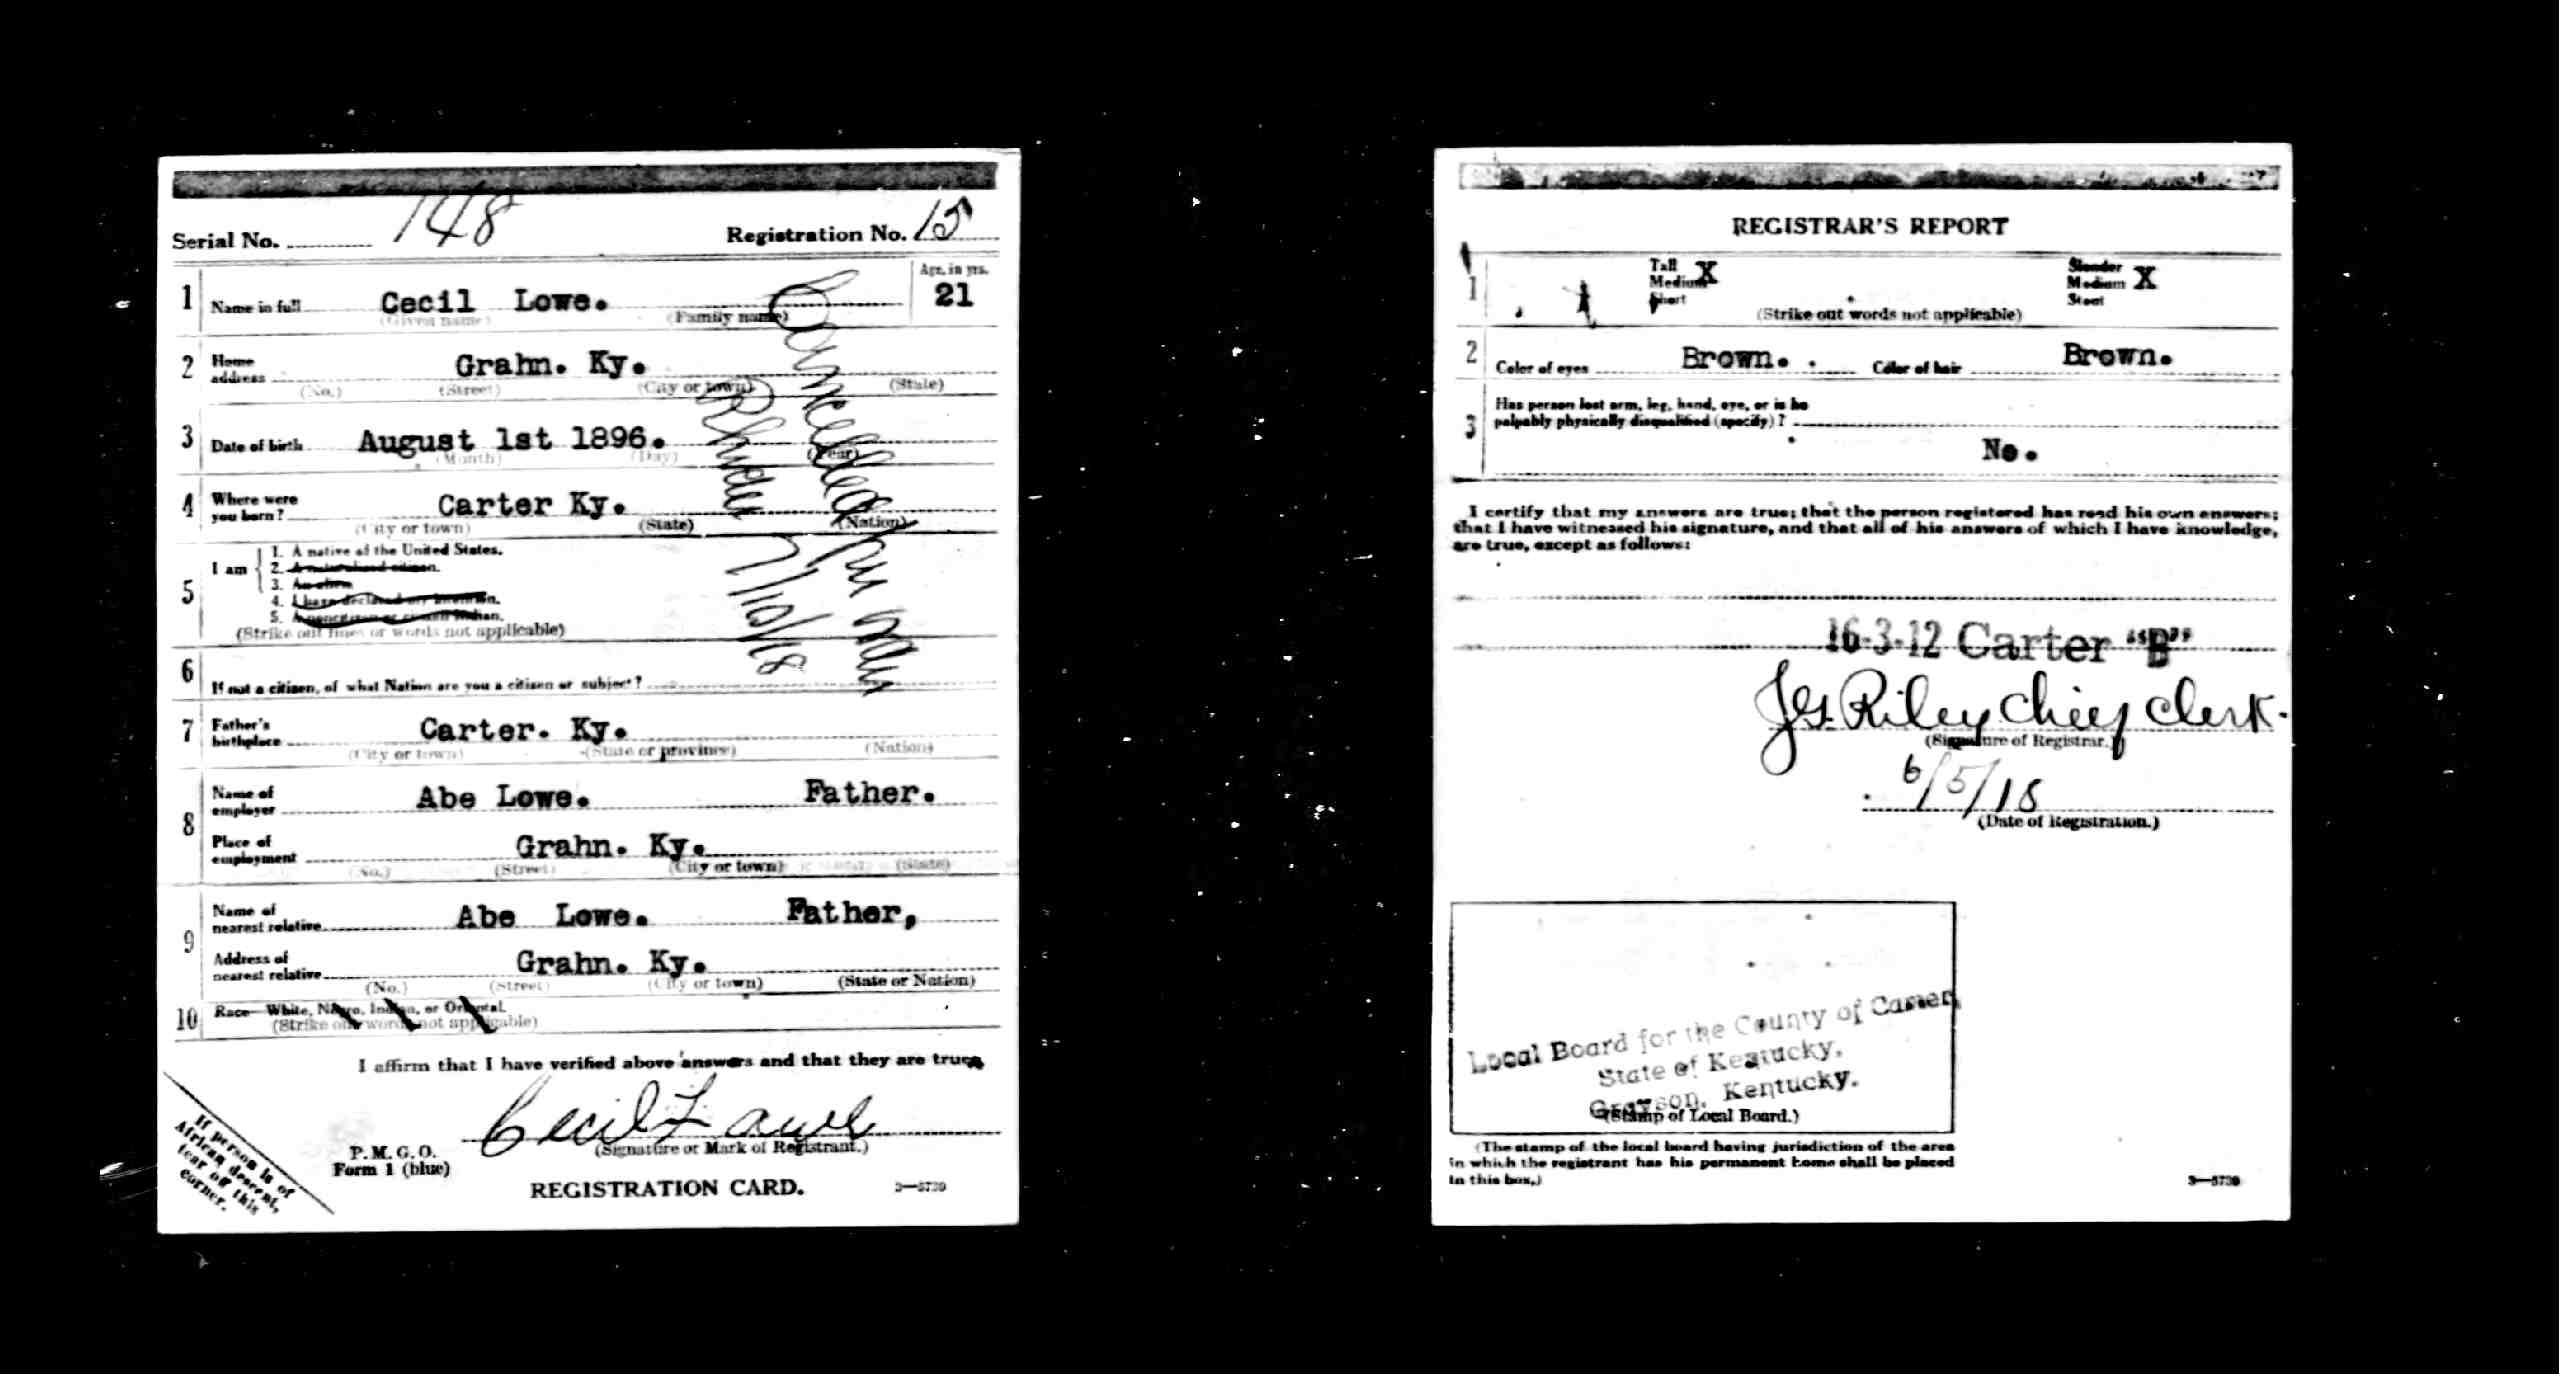 Serial No. 148 Registration No. 15
1 Name in full Cecil Lowe. Age, in yrs. 21
(Given name) (Family name)
2 Home address Grahn. Ky.
(No.) (Street) (City or town) (State)
3 Date of birth August 1st 1896.
(Month) (Day) (Year)
4 Where were you born? Carter Ky.
(City or town) (State) (Nation)
5 I am
1. A native of the United States.
2. A naturalized citizen.
3. An alien
4. I have declared my intention.
5. A noncitizen or citizen Indian.
(Strike out lines or words not applicable)
6 If not a citizen, of what Nation are you a citizen or subject?
7 Father's birthplace Carter. Ky.
(City or town) (State or province) (Nation)
8 Name of employer Abe Lowe. Father.
Place of employment Grahn. Ky.
(No.) (Street) (City or town) (State)
9 Name of nearest relative Abe Lowe. Father,
Address of nearest relative Grahn. Ky.
(No.) (Street) (City or town) (State or Nation)
10 Race—White, Negro, Indian, or Oriental.
(Strike out words not applicable)
Cancelled in Nav
7/10/18
I affirm that I have verified above answers and that they are true.
Cecil Lowe
(Signature or Mark of Registrant.)
P. M. G. O.
Form 1 (blue)
REGISTRATION CARD. 3—5739
If person is of
African descent,
tear off this
corner.
REGISTRAR'S REPORT
1 Tall X Slender X
Medium Medium
Short Stout
(Strike out words not applicable)
2 Color of eyes Brown. Color of hair Brown.
3 Has person lost arm, leg, hand, eye, or is he
palpably physically disqualified (specify)?
No.
I certify that my answers are true; that the person registered has read his own answers;
that I have witnessed his signature, and that all of his answers of which I have knowledge,
are true, except as follows:
16-3-12 Carter "B"
Jas. Riley Chief Clerk.
(Signature of Registrar.)
6/5/18
(Date of Registration.)
Local Board for the County of Carter,
State of Kentucky,
Grayson, Kentucky.
(Stamp of Local Board.)
(The stamp of the local board having jurisdiction of the area
in which the registrant has his permanent home shall be placed
in this box.)
3—5739